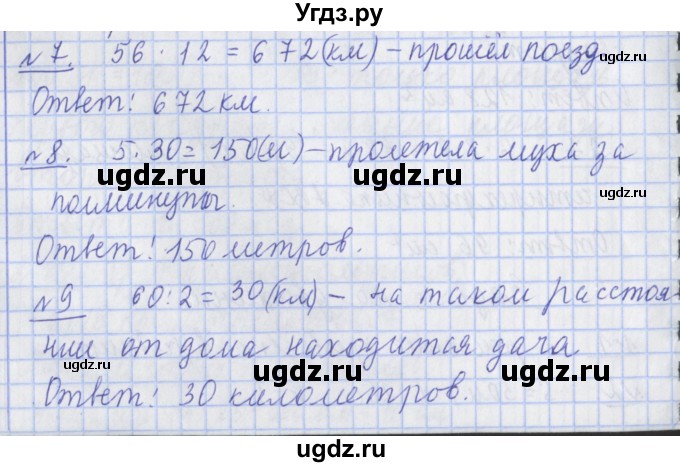 Угдз.ру
№7. 56 · 12 = 672(км) – прошёл поезд
Ответ: 672 км.
№8. 5 · 30 = 150(м) – пролетела муха за
полминуты.
Ответ: 150 метров.
№9 60 : 2 = 30(км) – на таком расстоя-
нии от дома находится дача
Ответ: 30 километров.
ugdz.ru ugdz.ru
ugdz.ru ugdz.ru
ugdz.ru ugdz.ru
ugdz.ru ugdz.ru